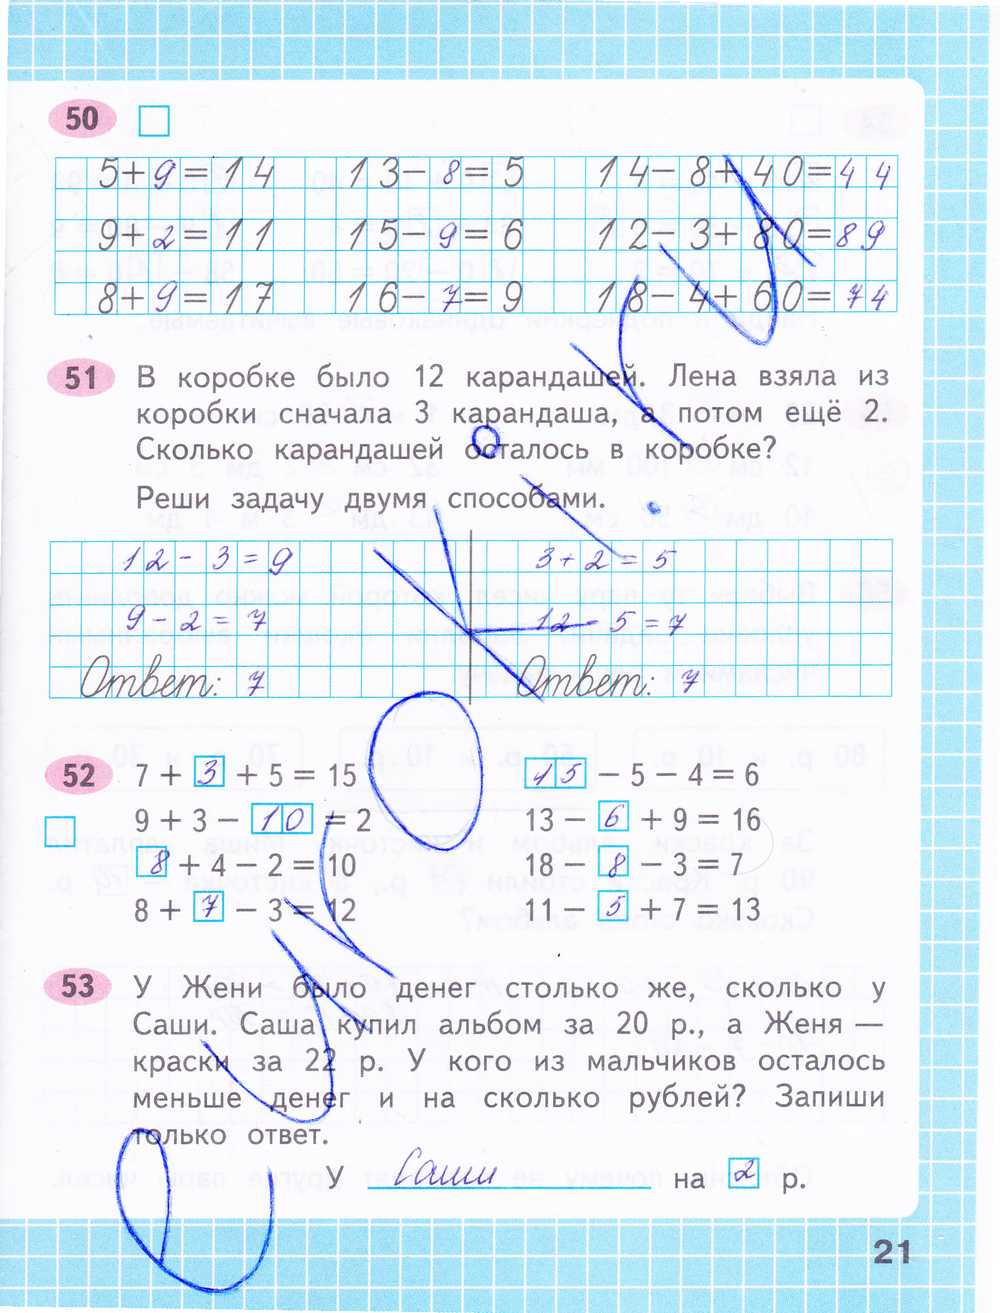 50
5+9=14 13-8=5 14-8+40=44
9+2=11 15-9=6 12-3+80=89
8+9=17 16-7=9 18-4+60=74
51 В коробке было 12 карандашей. Лена взяла из
коробки сначала 3 карандаша, а потом ещё 2.
Сколько карандашей осталось в коробке?
Реши задачу двумя способами.
12-3=9 3+2=5
9-2=7 12-5=7
Ответ: 7 Ответ: 7
52 7 + 3 + 5 = 15 15 − 5 − 4 = 6
9 + 3 − 10 = 2 13 − 6 + 9 = 16
8 + 4 − 2 = 10 18 − 8 − 3 = 7
8 + 7 − 3 = 12 11 − 5 + 7 = 13
53 У Жени было денег столько же, сколько у
Саши. Саша купил альбом за 20 р., а Женя —
краски за 22 р. У кого из мальчиков осталось
меньше денег и на сколько рублей? Запиши
только ответ.
У Саши на 2 р.
21